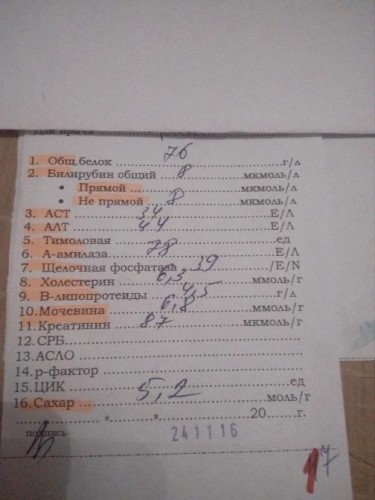 1. Общ.белок 76 г/л
2. Билирубин общий 8 мкмоль/л
• Прямой мкмоль/л
• Не прямой 8 мкмоль/л
3. АСТ 34 Е/Л
4. АЛТ 44 Е/Л
5. Тимоловая ед
6. А-амилаза 78 Е/Л
7. Щелочная фосфатаза 39 /Е/N
8. Холестерин 6,3 ммоль/г
9. В-липопротеиды 4,5 г/л
10.Мочевина 6,8 ммоль/г
11.Креатинин 87 мкмоль/г
12.СРБ
13.АСЛО
14.р-фактор
15.ЦИК ед
16.Сахар 5,2 моль/г
«» 20 г.
подпись 241116
17